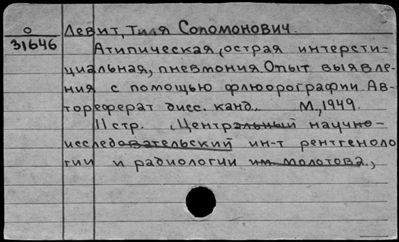 о Левит, Тиля Соломонович.
31646 Атипическая, острая интерсти-
циальная, пневмония. Опыт выявле-
ния с помощью флюорографии. Ав-
тореферат дисс. канд. М., 1949.
11 стр. , Центральный научно-
исследовательский ин-т рентгеноло
гии и радиологии им. Молотова.,